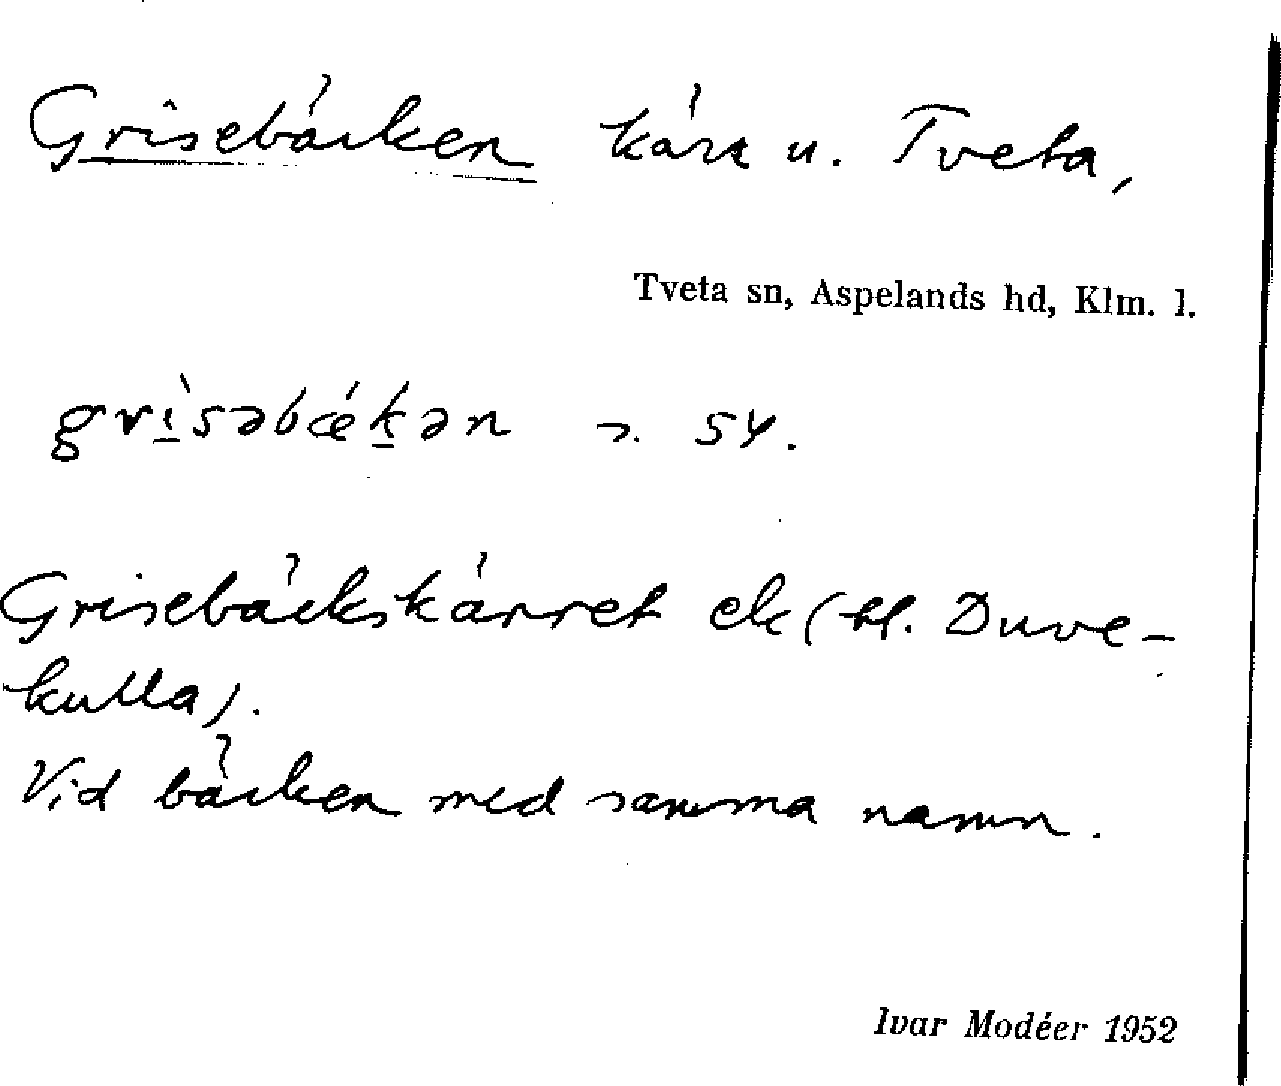 Grisebäcken kärr u. Tveta,
Tveta sn, Aspelands hd, Klm. l.
grì̱səbǽḵən ɔ. sy.
Grisebäckskärret ek (tl. Duve-
kulla).
Vid bäcken med samma namn.
Ivar Modéer 1952